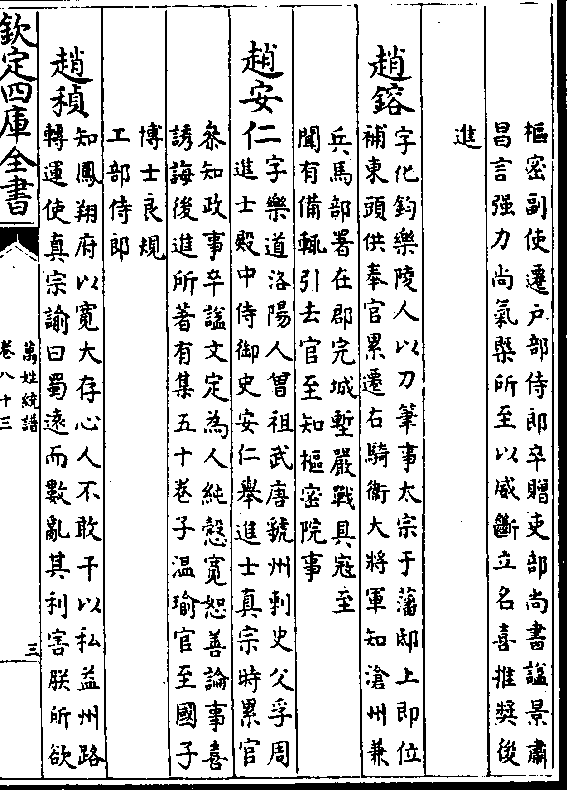 樞密副使遷户部侍郎卒贈吏部尚書諡景肅
昌言强力尚氣槩所至以威斷立名喜推奬後
進
趙鎔
字化鈞樂陵人以刀筆事太宗于藩邸上即位
補東頭供奉官累遷右騎衛大將軍知滄州兼
兵馬部署在郡完城塹嚴戰具寇至
聞有備輒引去官至知樞密院事
趙安仁
字樂道洛陽人曽祖武唐虢州刺史父孚周
進士殿中侍御史安仁舉進士真宗時累官
叅知政事卒諡文定為人純慤寛恕善論事喜
誘誨後進所著有集五十卷子温瑜官至國子
博士良規
工部侍郎
趙稹
知鳳翔府以寛大存心人不敢干以私益州路
轉運使真宗諭曰蜀遠而數亂其利害朕所欲
欽定四庫全書
萬姓統譜
卷八十三
三